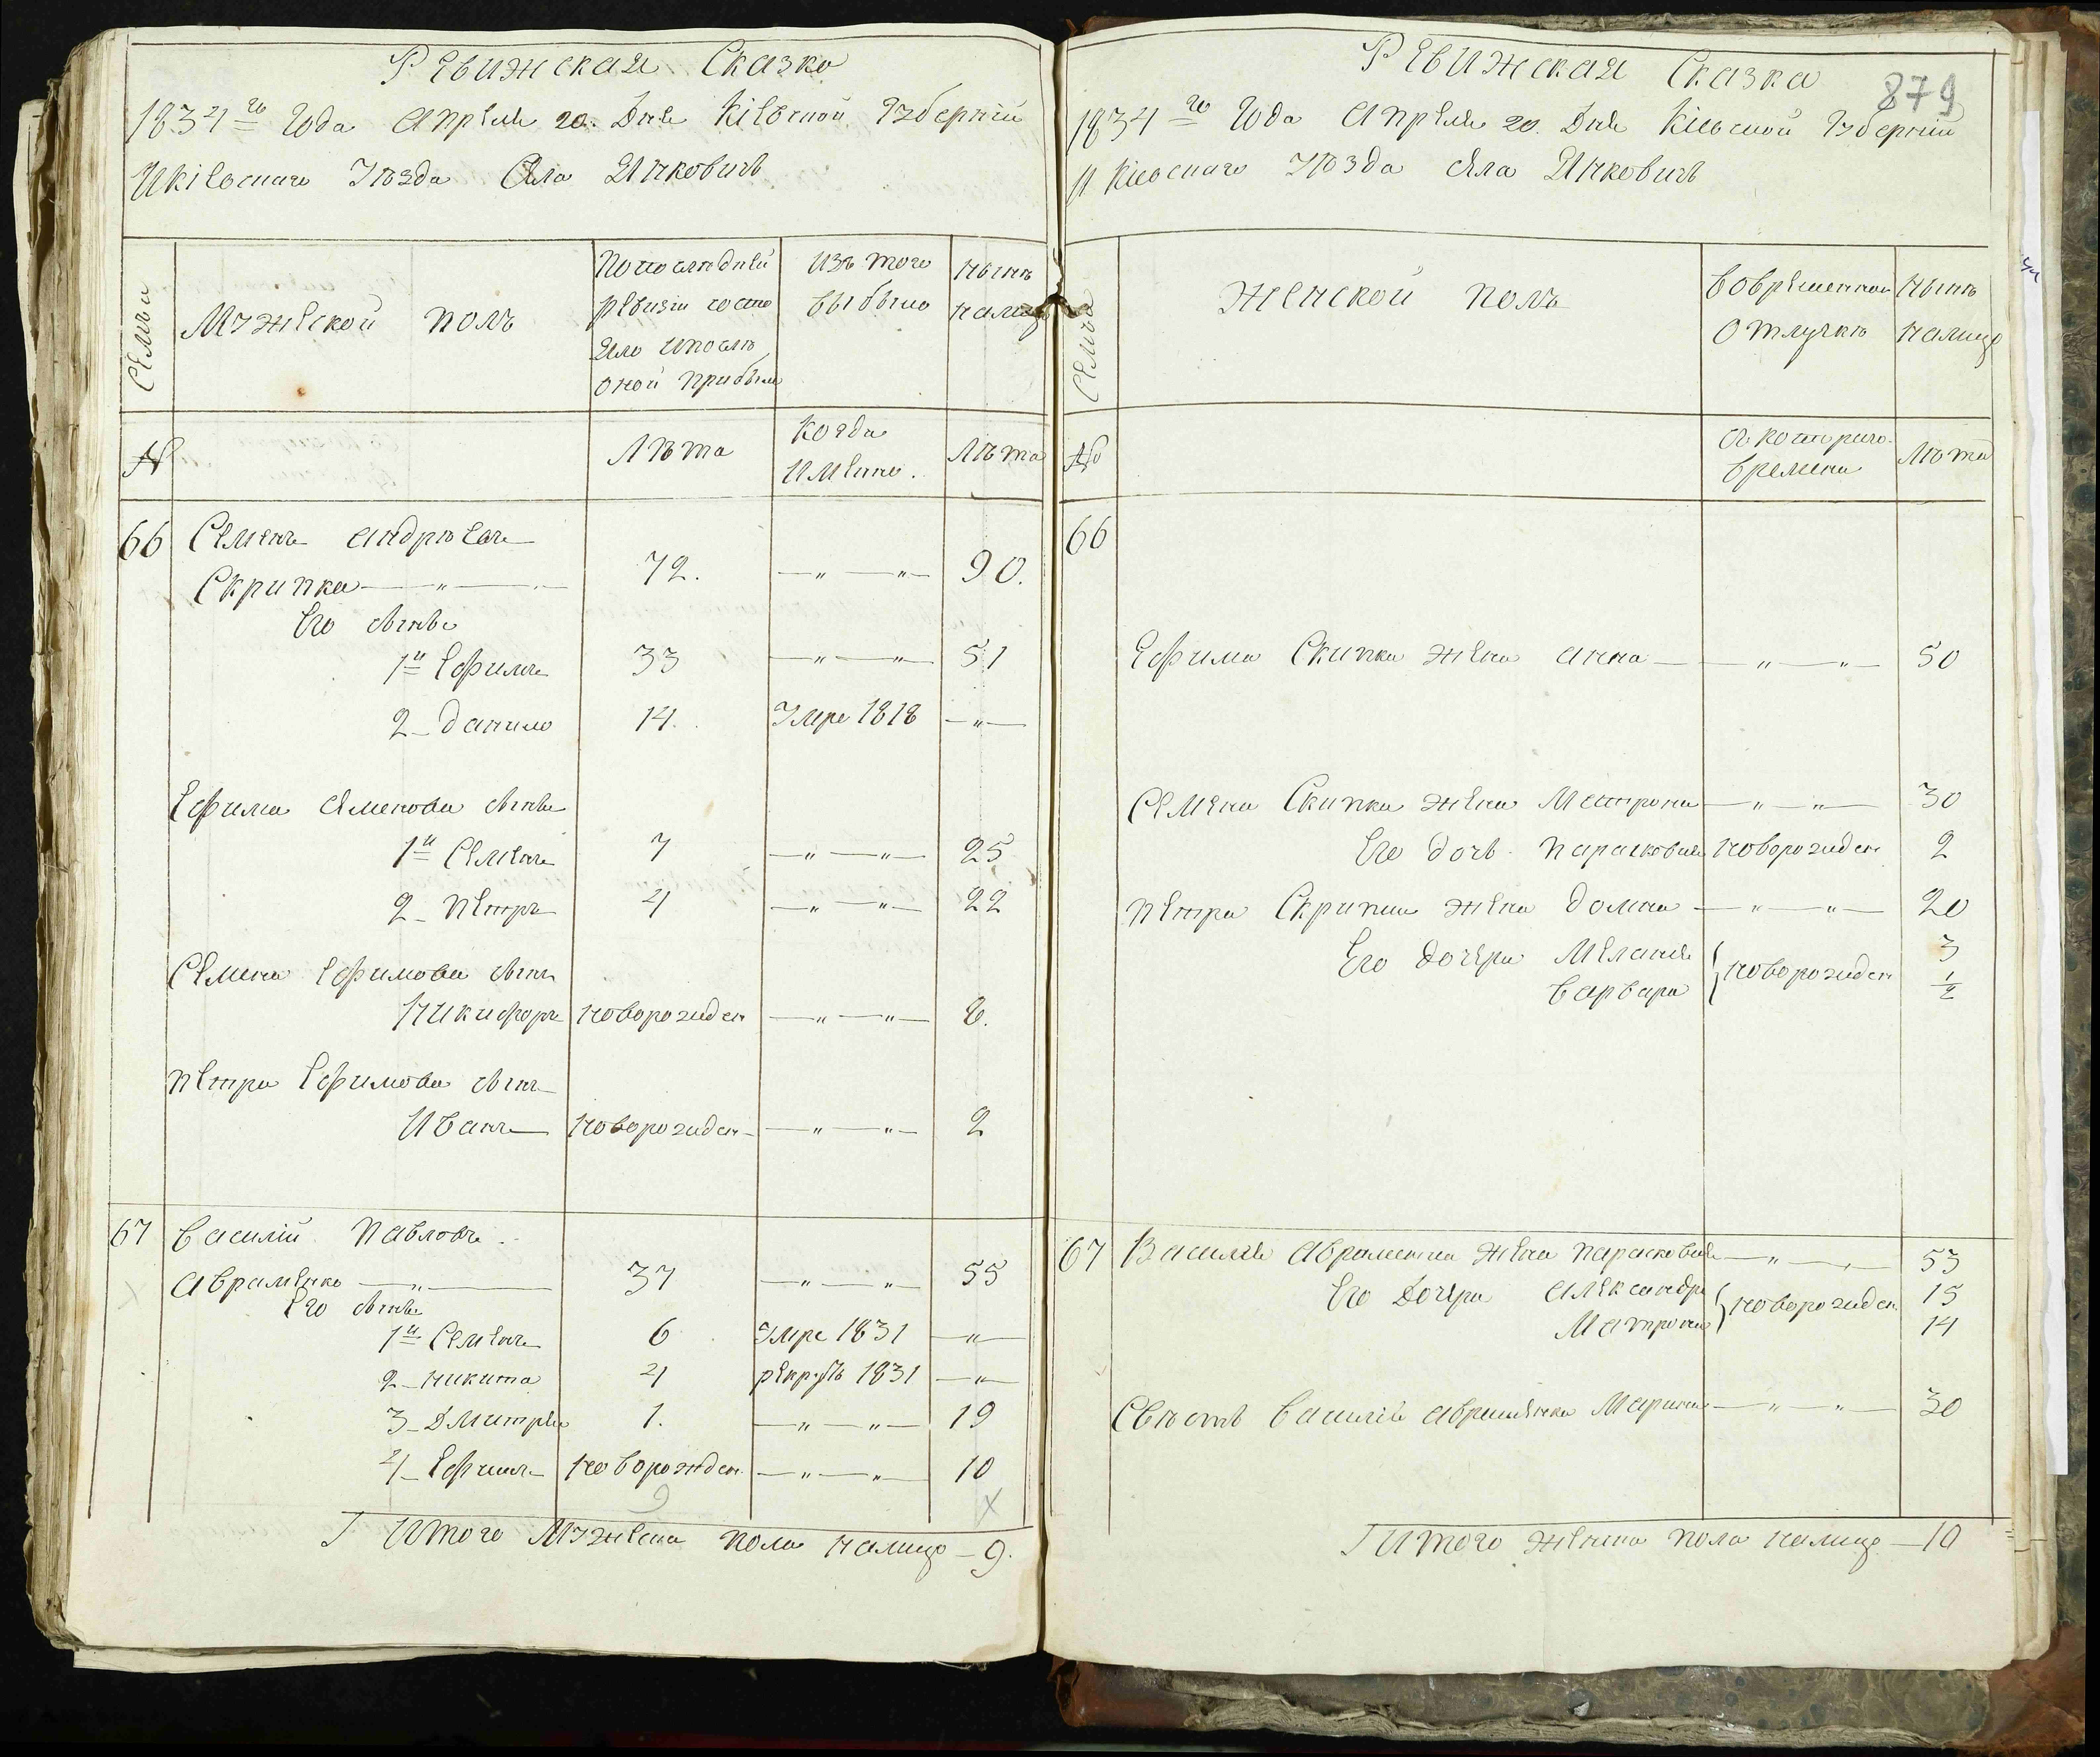 Ревижская Сказко
1834го Года Апреля 20. Дня Кіевской Губерніи
И Кіевскаго Уѣзда Села Янковичъ
Семьи
Мужеской полъ
По последней
ревизіи состо
яло и послѣ
оной прибыло
Изъ того
выбыло
Нынѣ
налицо
№
Лѣта
Когда
Именно.
Лѣта
66 Семенъ Андрѣевъ
Скрипка 72. —„—„— 90.
Его сыновя
1й Ефимъ 33 —„—„— 51
2 Данило 14. Умре 1818 —„—
Ефима Семенова сыновя
1й Семенъ 7 —„—„— 25
2 Петръ 4 —„—„— 22
Семена Ефимова сынъ
Никифоръ новорожден —„—„— 8.
Петра Ефимова сынъ
Иванъ новорожден —„—„— 2
67 Василій Павловъ
Авраменко —„— 37 —„—„— 55
Его сыновя
1й Семенъ 6 Умре 1831 —„—
2 Никита 4 рекрутъ 1831 —„—
3 Дмитрій 1. —„—„— 19
4 Ефимъ новорожден. —„—„— 10
Итого Мужеска пола налицо — 9.
Ревижская Сказка
879
1834го Года Апреля 20. Дня Кіевской Губерніи
И Кіевскаго Уѣзда Села Янковичъ
Семьи
Женской полъ
Вовременной
Отлучкѣ
Нынѣ
налицо
№
съ котораго
времени
Лѣта
66
Ефима Скипки жена Анна —„—„— 50
Семена Скипки жена Мотрона —„—„— 30
Его дочь Парасковия новорожден 2
Петра Скрипки жена Домна —„—„— 20
Его дочери Мелания новорожден 3
Варвара 1/2
67 Василя Авраменка жена Парасковия —„—„— 53
Его Дочери Александра новорожден 15
Матрона 14
Свѣсть Василія Авраменка Марина —„—„— 30
Итого женска пола налицо — 10